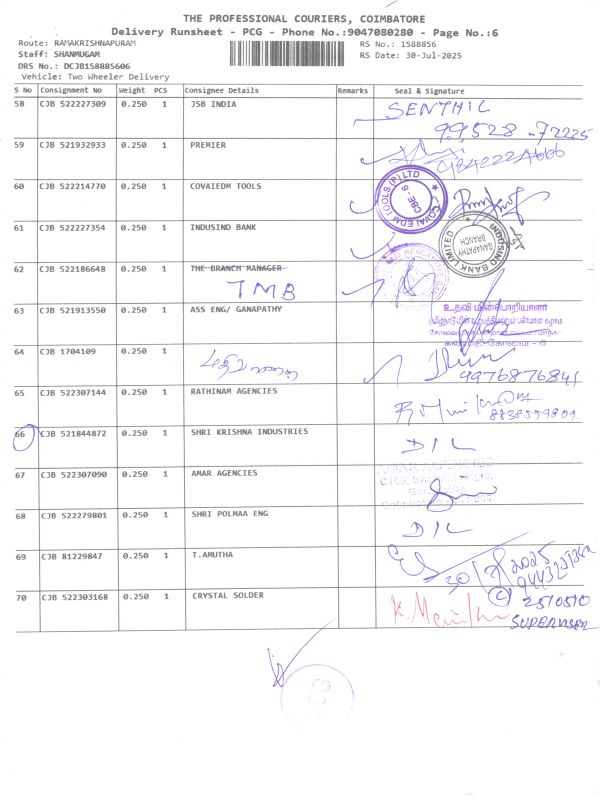 THE PROFESSIONAL COURIERS, COIMBATORE
Delivery Runsheet - PCG - Phone No.:9047080280 - Page No.:6
Route: RAMAKRISHNAPURAM RS No.: 1588856
Staff: SHANMUGAM RS Date: 30-Jul-2025
DRS No.: DCJB158885606
Vehicle: Two Wheeler Delivery
S No Consignment No Weight PCS Consignee Details Remarks Seal & Signature
58 CJB 522227309 0.250 1 JSB INDIA SENTHIL
99528-72225
59 CJB 521932933 0.250 1 PREMIER
60 CJB 522214770 0.250 1 COVAIEDM TOOLS
COVAI EDM TOOLS (P) LTD CBE-6
61 CJB 522227354 0.250 1 INDUSIND BANK
INDUSIND BANK LIMITED GANAPATHY BRANCH
62 CJB 522186648 0.250 1 THE BRANCH MANAGER
TMB
63 CJB 521913550 0.250 1 ASS ENG/ GANAPATHY
உதவி மின்பொறியாளர்
64 CJB 1704109 0.250 1
9976876841
65 CJB 522307144 0.250 1 RATHINAM AGENCIES
8838559809
66 CJB 521844872 0.250 1 SHRI KRISHNA INDUSTRIES D/L
67 CJB 522307090 0.250 1 AMAR AGENCIES
AMAR AGENCIES
68 CJB 522279801 0.250 1 SHRI POLMAA ENG D/L
69 CJB 81229847 0.250 1 T.AMUTHA
70 CJB 522303168 0.250 1 CRYSTAL SOLDER
SUPERVISER